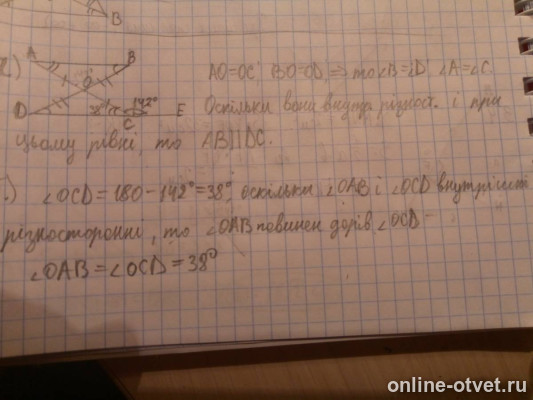 B
2)
A B
O
AO=OC, BO=OD, => то ∠B=∠D, ∠A=∠C.
D 38° 142° C E
Оскільки вони внутр різност. і при
цьому рівні, то AB||DC.
.) ∠OCD = 180 - 142° = 38°, оскільки ∠OAB і ∠OCD внутрішні
різносторонні, то ∠OAB повинен дорів. ∠OCD
∠OAB = ∠OCD = 38°
online-otvet.ru